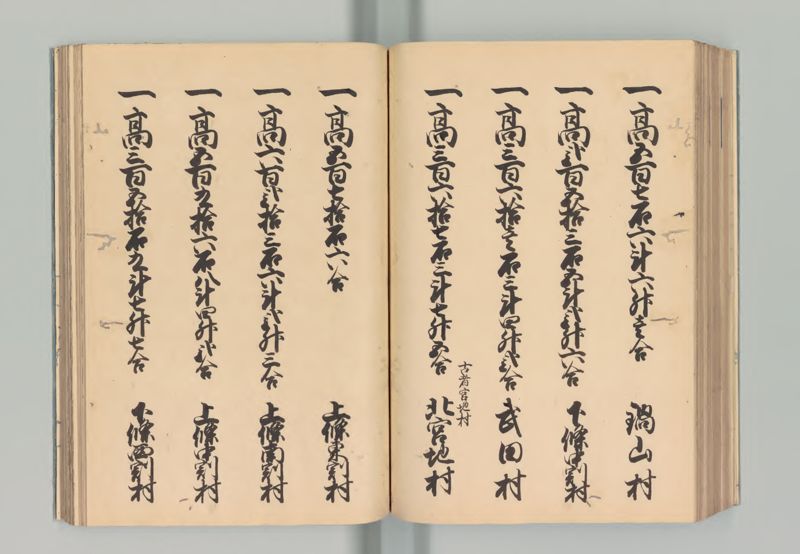 一高五百七石六斗六升壱合　鍋山村
一高弐百五拾三石五斗弐升六合　下條中割村
一高三百六拾壱石三斗四升弐合　武田村
古者宮地村
一高三百六拾七石三斗七升五合　北宮地村
一高五百七拾石六合　上條東割村
一高六百弐拾三石六斗弐升三合　上條南割村
一高五百九拾六石八斗四升弐合　上條中割村
一高三百五拾石九斗七升七合　下條西割村